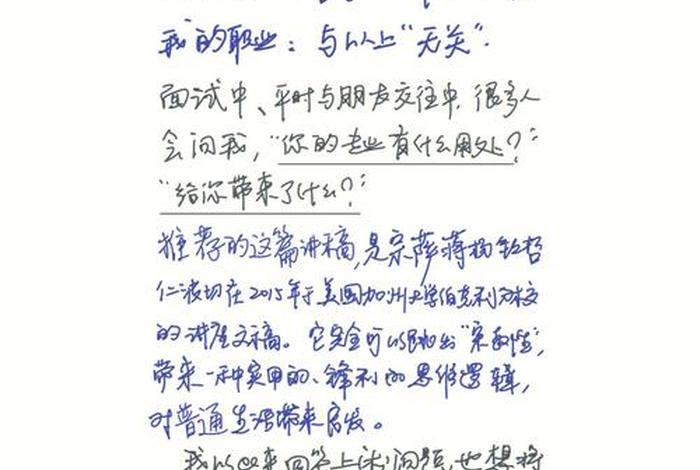 我的职业：与以上“无关”.
面试中、平时与朋友交往中，很多人
会问我，“你的专业有什么用处？”
“给你带来了什么？”
推荐的这篇讲稿，是宗萨蒋扬钦哲
仁波切在2015年于美国加州大学伯克利分校
的讲座文稿。它完全可以跳出“宗教性”，
带来一种实用的、锋利的思维逻辑，
对普通生活带来启发。
我以此来回答上述问题，也想将